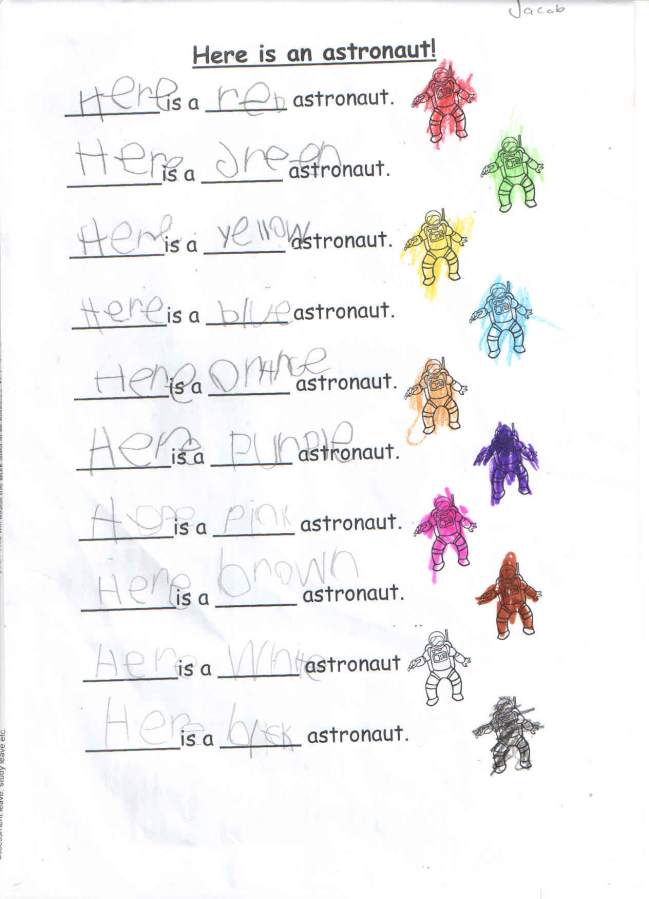 Jacob
Here is an astronaut!
Here is a red astronaut.
Here is a green astronaut.
Here is a yellow astronaut.
Here is a blue astronaut.
Here is a Orange astronaut.
Here is a purple astronaut.
Here is a pink astronaut.
Here is a brown astronaut.
Here is a White astronaut
Here is a black astronaut.